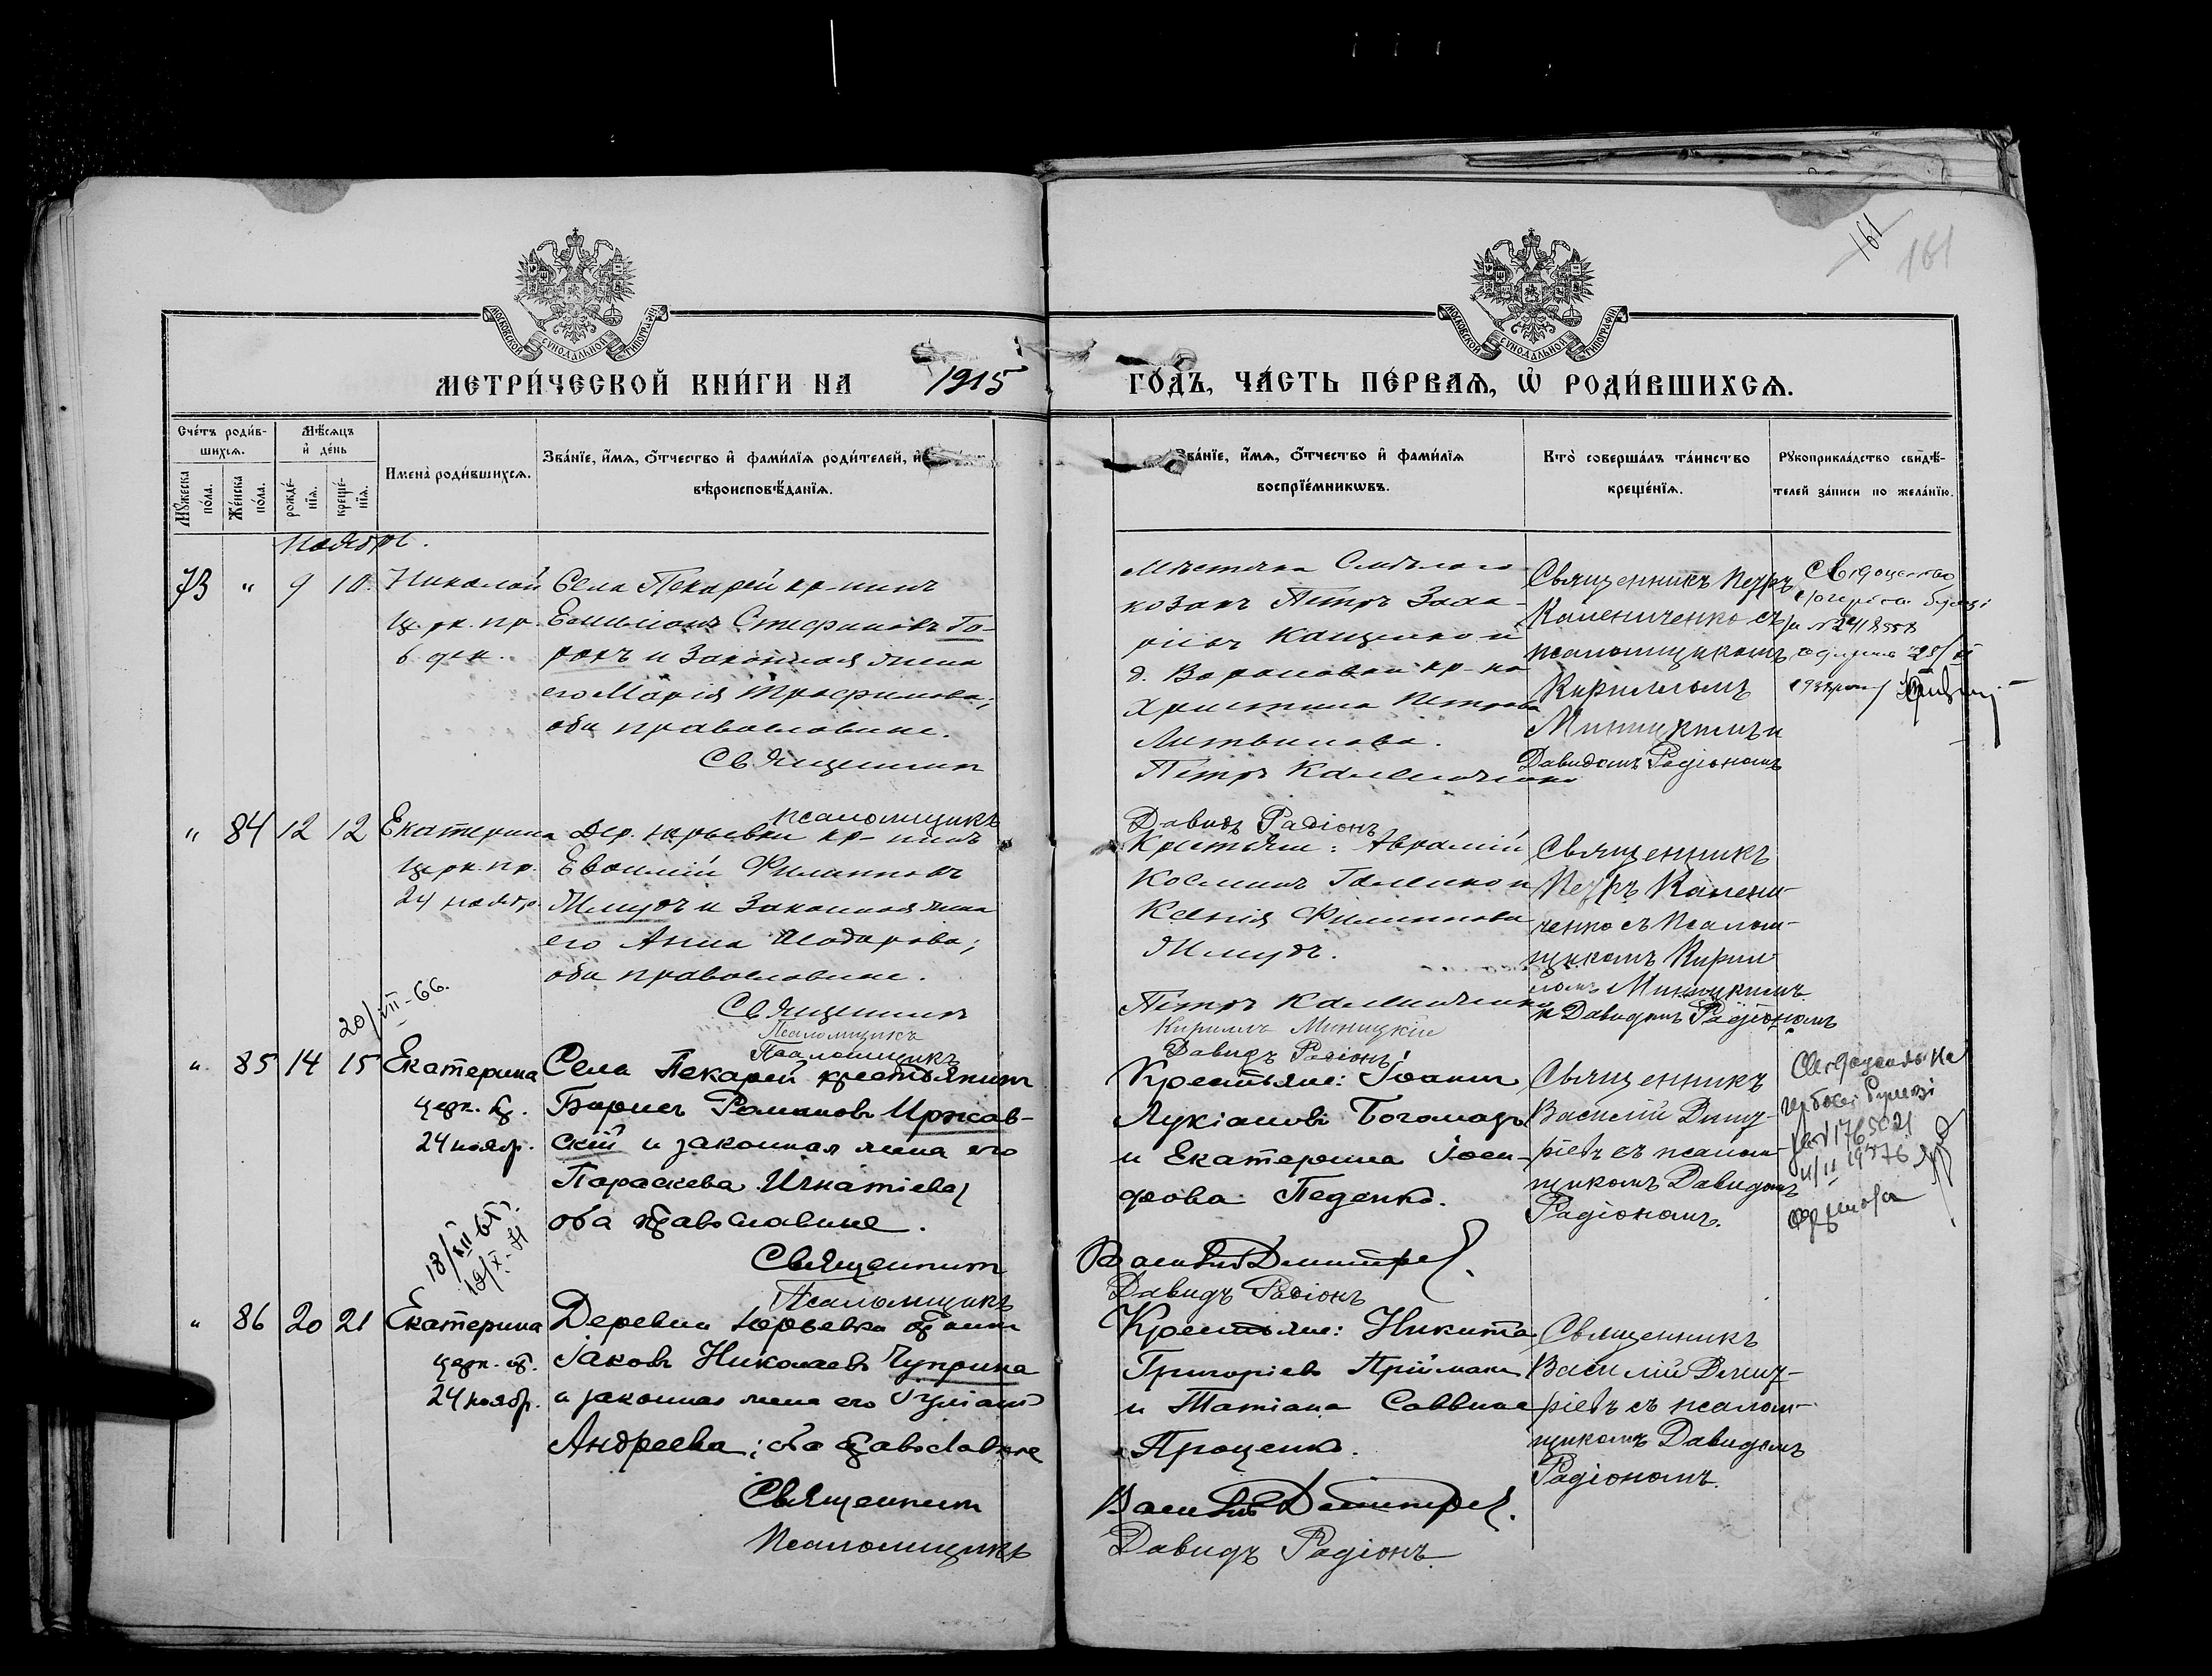 161
161
МОСКОВСКОЙ СѴНОДАЛЬНОЙ ТИПОГРАФІИ
МОСКОВСКОЙ СѴНОДАЛЬНОЙ ТИПОГРАФІИ
МЕТРИ́ЧЕСКОЙ КНИ́ГИ НА 1915 ГО́ДЪ, ЧА́СТЬ ПЕ́РВАѦ, Ѡ҆ РОДИ́ВШИХСѦ.
Сче́тъ роди́в-
шихсѧ.
Мꙋ́жеска по́ла.
Же́нска по́ла.
Мѣ́сѧцъ
и҆ де́нь
рожде́-
нїѧ.
креще́-
нїѧ.
Имена̀ роди́вшихсѧ.
Зва́нїе, и҆́мѧ, о҆́тчество и҆ фами́лїѧ роди́телей, и҆
вѣроисповѣ́данїѧ.
Зва́нїе, и҆́мѧ, о҆́тчество и҆ фами́лїѧ
воспрїе́мникѡвъ.
Кто̀ соверша́лъ та́инство
креще́нїѧ.
Рꙋкоприкла́дство свидѣ́-
телей за́писи по жела́нїю.
Ноябрь.
73 " 9 10
Николай
Церк. пр.
6 дек.
Села Пекарей кр-нинъ
Емиліанъ Стефановъ Го-
и Законная жена
его Марія Трофимова;
оба православные.
Священникъ
псаломщикъ
Мѣстечка
козакъ Петръ Заха-
ріевъ и
д. кр-ка
Христина Петрова
Литвинова.
Петръ Калениченко
Давидъ Радіонъ
Священникъ Петръ
Калениченко съ
псаломщикомъ
Кирилломъ
Миницкимъ и
Давидомъ Радіономъ
" 84 12 12
Екатерина
Церк. пр.
24 ноябр.
Дер. Юрьевки кр-нинъ
Евфимій Филипповъ
и Законная жена
его Анна
оба православные.
Священникъ
Псаломщикъ
Псаломщикъ
Крестьяне: Аврамій
Косминъ и
Ксенія Филиппова
Петръ Калениченко
Кириллъ Миницкій
Давидъ Радіонъ
Священникъ
Петръ Калени-
ченко съ Псалом-
щикомъ Кирил-
ломъ Миницкимъ
и Давидомъ Радіономъ
20/VII-66.
" 85 14 15
Екатерина
церк. пр.
24 ноябр.
Села Пекарей крестьянинъ
Борисъ Романовъ Иржав-
скій и законная жена его
Параскева Игнатіева;
оба православные.
Священникъ
Псаломщикъ
Крестьяне: Іоаннъ
Лукіановъ Богомазъ
и Екатерина Іоси-
фова Педенко.
Василій Димитріевъ.
Давидъ Радіонъ
Священникъ
Василій Димит-
ріевъ съ псалом-
щикомъ Давидомъ
Радіономъ.
" 86 20 21
Екатерина
церк. пр.
24 ноябр.
Деревни Юрьевки
Іаковъ Николаевъ Чуприна
и законная жена его Іуліанія
Андреева; оба православные
Священникъ
Псаломщикъ
Крестьяне: Никита
Григоріевъ Приймакъ
и Татіана Саввина
Проценко.
Василій Димитріевъ.
Давидъ Радіонъ.
Священникъ
Василій Димит-
ріевъ съ псалом-
щикомъ Давидомъ
Радіономъ.